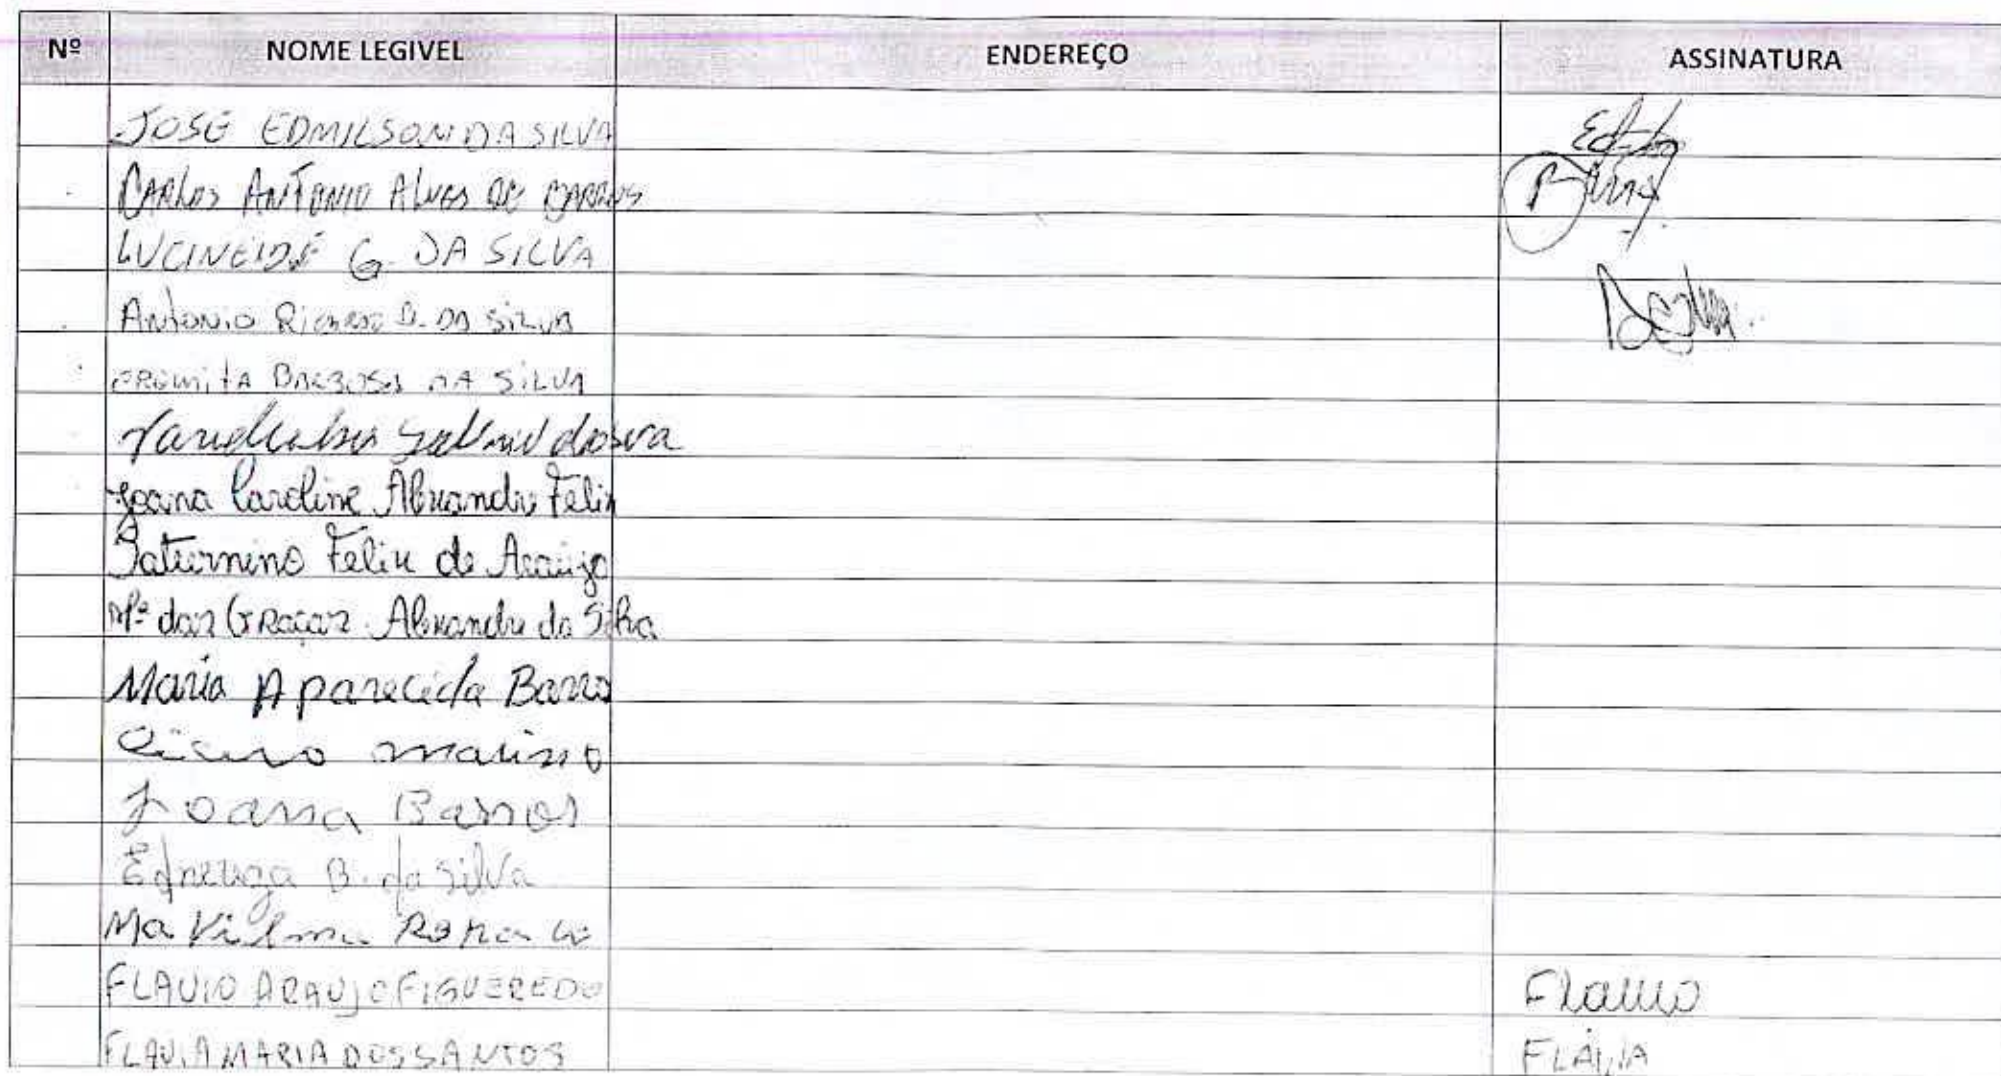 Nº NOME LEGIVEL ENDEREÇO ASSINATURA
JOSÉ EDMILSON DA SILVA
CARLOS ANTONIO ALVES DE BARROS
LUCINEIDE G. DA SILVA
ANTONIO RICARDO B. DA SILVA
BARBOSA DA SILVA
Joana Caroline Alexandre Felix
Saturnino Felix de Araújo
Mª das Graças Alexandre da Silva
Maria Aparecida Barros
Cicero
Joana Barros
Edneuza B. da Silva
Ma Vilma
FLAVIO ARAUJO FIGUEREDO Flavio
FLAVIA MARIA DOS SANTOS FLÁVIA